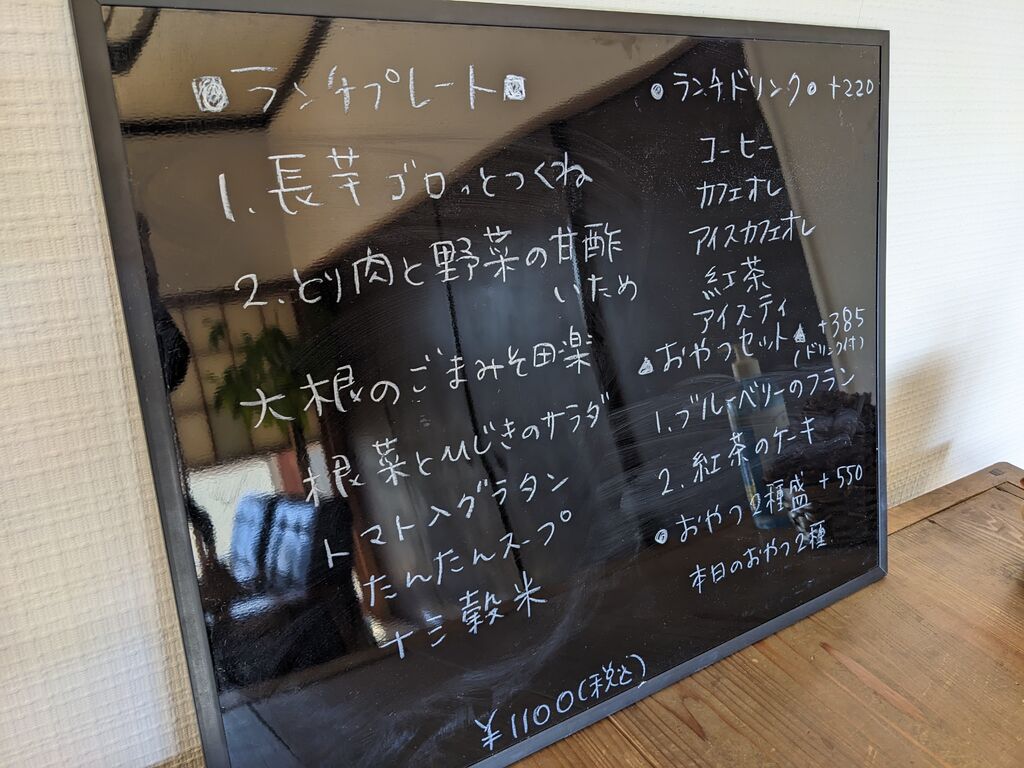 ランチプレート
1. 長芋ゴロっとつくね
2. とり肉と野菜の甘酢
いため
大根のごまみそ田楽
根菜とひじきのサラダ
トマト入グラタン
たんたんスープ
十三穀米
¥1100(税込)
ランチドリンク +220
コーヒー
カフェオレ
アイスカフェオレ
紅茶
アイスティ
おやつセット +385
(ドリンク付)
1. ブルーベリーのフラン
2. 紅茶のケーキ
おやつ2種盛 +550
本日のおやつ2種